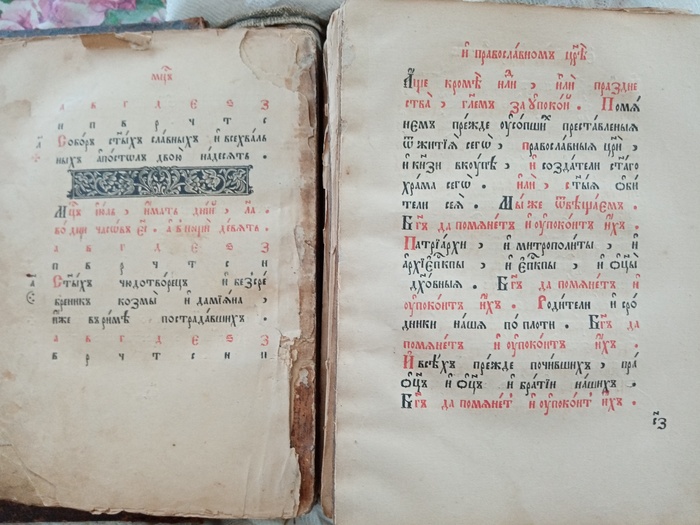 мц҃ъ
а в г д е ѕ з
н п в р ч т с
а҃ Собо́ръ ст҃ы́хъ сла́вныхъ и҆ всеха́ль
ныхъ а҆по́столъ двою̀ на́десѧть .
Мц҃ъ і҆ю́ль , и҆́мать дні́й , ла҃ .
во днѝ часо́въ є҃і . а҆ в нощѝ де́вѧть .
а в г д е ѕ з
п в р ч т с н
а҃ Ст҃ы́хъ чюдотво́рецъ и҆ безсре́
бреникъ козмы̀ и҆ дамїа́на ,
и҆́же в ри́мѣ пострада́вшихъ .
а в г д е ѕ з
в р ч т с н п
и҆ правосла́вномъ цр҃ѣ
А҆́ще кромѣ̀ нл҃и , и҆лѝ пра́здне
ства̀ , гл҃емъ за оу҆поко́й . Помѧ
не́мъ пре́жде оу҆со́пшиѧ преста́вльныѧ
ѿ житїѧ̀ сегѡ̀ , правосла́вныѧ цр҃ѝ ,
и҆ кнѧ̑зи вкꙋ́пѣ , и҆ созда́тели ст҃а́го
хра́ма сегѡ̀ . и҆лѝ , ст҃ы́ѧ ѻ҆би́
тели сеѧ̀ . Мы́ же ѿвѣща́емъ .
Бг҃ъ да помѧне́тъ и҆ оу҆поко́итъ и҆̀хъ .
Патрїа́рхи , и҆ митрополи́ты , и҆
а҆рхїепⷭ҇кпы , и҆ є҆пⷭ҇кпы , и҆ ѻ҆ц҃ы̀
дх҃о́вныѧ . Бг҃ъ да помѧне́тъ и҆
оу҆поко́итъ и҆̀хъ . Роди́тели и҆ сро́
дники на́шѧ по пло́ти . Бг҃ъ да
помѧне́тъ и҆ оу҆поко́итъ и҆̀хъ .
И҆ всѣ́хъ пре́жде почи́вшихъ , пра́
ѻ҆ц҃ъ и҆ ѻ҆ц҃ъ и҆ бра́тїи на́шихъ .
Бг҃ъ да помѧне́тъ и҆ оу҆поко́итъ и҆̀хъ .
н҃з